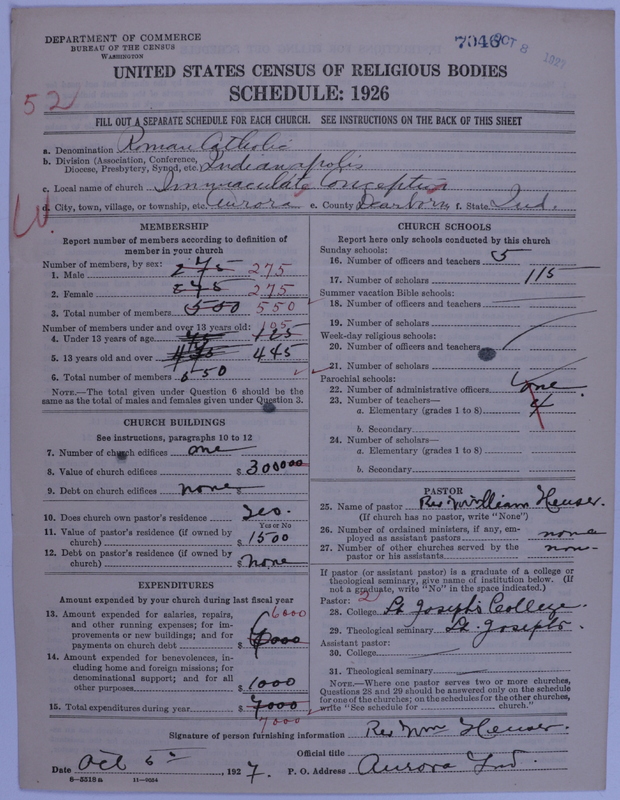 DEPARTMENT OF COMMERCE
BUREAU OF THE CENSUS
WASHINGTON
7046 OCT 8 1927
UNITED STATES CENSUS OF RELIGIOUS BODIES
SCHEDULE: 1926
52
FILL OUT A SEPARATE SCHEDULE FOR EACH CHURCH. SEE INSTRUCTIONS ON THE BACK OF THIS SHEET
a. Denomination Roman Catholic
b. Division (Association, Conference, Diocese, Presbytery, Synod, etc. Indianapolis
c. Local name of church Immaculate Conception
d. City, town, village, or township, etc. Aurora e. County Dearborn f. State Ind.
MEMBERSHIP
Report number of members according to definition of
member in your church
Number of members, by sex:
1. Male 275 275
2. Female 275 275
3. Total number of members 550 550
Number of members under and over 13 years old:
4. Under 13 years of age 105
5. 13 years old and over 445
6. Total number of members 550
NOTE.—The total given under Question 6 should be the
same as the total of males and females given under Question 3.
CHURCH BUILDINGS
See instructions, paragraphs 10 to 12
7. Number of church edifices one
8. Value of church edifices $ 30000
9. Debt on church edifices $ none
10. Does church own pastor's residence Yes.
Yes or No
11. Value of pastor's residence (if owned by
church) $ 1500
12. Debt on pastor's residence (if owned by
church) $ None
EXPENDITURES
Amount expended by your church during last fiscal year
13. Amount expended for salaries, repairs, 6000
and other running expenses; for im-
provements or new buildings; and for
payments on church debt $ 6000
14. Amount expended for benevolences, in-
cluding home and foreign missions; for
denominational support; and for all
other purposes $ 1000
15. Total expenditures during year $ 7000
7000
CHURCH SCHOOLS
Report here only schools conducted by this church
Sunday schools:
16. Number of officers and teachers 5
17. Number of scholars 115
Summer vacation Bible schools:
18. Number of officers and teachers
19. Number of scholars
Week-day religious schools:
20. Number of officers and teachers
21. Number of scholars
Parochial schools:
22. Number of administrative officers one
23. Number of teachers—
a. Elementary (grades 1 to 8) 4
b. Secondary
24. Number of scholars—
a. Elementary (grades 1 to 8)
b. Secondary
PASTOR
25. Name of pastor Rev William Heuser.
(If church has no pastor, write "None")
26. Number of ordained ministers, if any, em-
ployed as assistant pastors none
27. Number of other churches served by the
pastor or his assistants none
If pastor (or assistant pastor) is a graduate of a college or
theological seminary, give name of institution below. (If
not a graduate, write "No" in the space indicated.)
Pastor: 2
28. College St Joseph's College.
29. Theological seminary St. Josephs.
Assistant pastor:
30. College
31. Theological seminary
NOTE.—Where one pastor serves two or more churches,
Questions 28 and 29 should be answered only on the schedule
for one of the churches; on the schedules for the other churches,
write "See schedule for church."
Signature of person furnishing information Rev Wm Heuser.
Official title
Date Oct 5th, 1927. P. O. Address Aurora Ind.
8-5318a 11-9084